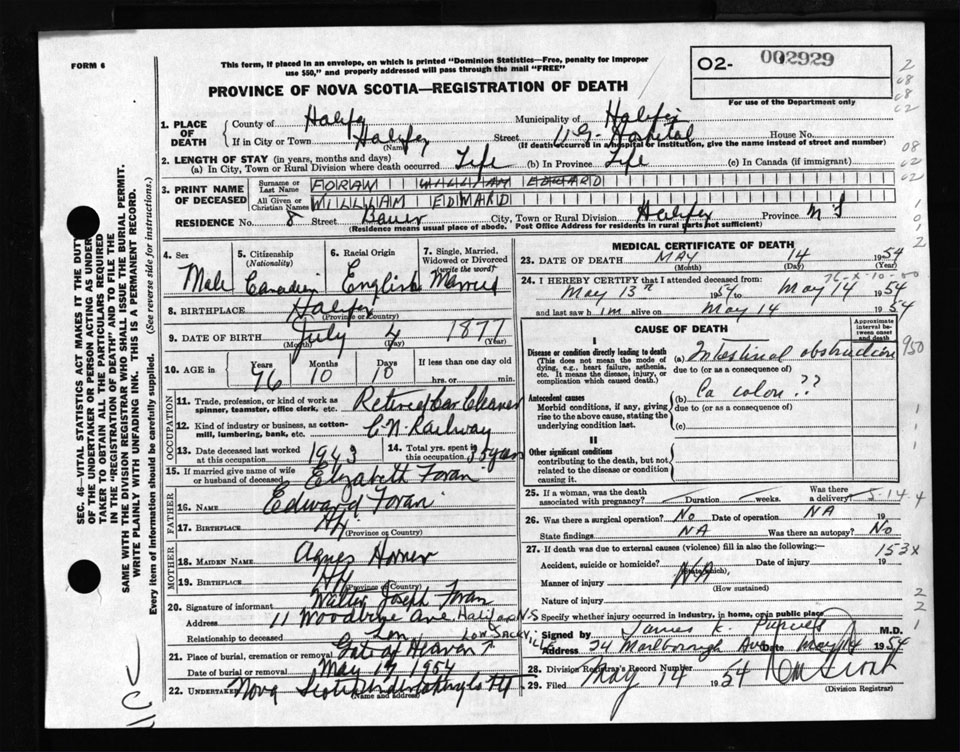 FORM 6
This form, if placed in an envelope, on which is printed "Dominion Statistics—Free, penalty for improper
use $50," and properly addressed will pass through the mail "FREE"
PROVINCE OF NOVA SCOTIA—REGISTRATION OF DEATH
O2- 002929
For use of the Department only
1. PLACE OF DEATH County of Halifax Municipality of Halifax
If in City or Town Halifax (Name) Street Hospital House No.
(If death occurred in a hospital or institution, give the name instead of street and number)
2. LENGTH OF STAY (in years, months and days)
(a) In City, Town or Rural Division where death occurred Life (b) In Province Life (c) In Canada (if immigrant)
3. PRINT NAME OF DECEASED Surname or Last Name FORAN WILLIAM EDWARD
All Given or Christian Names WILLIAM EDWARD
RESIDENCE No. 8 Street Bauer City, Town or Rural Division Halifax Province N S
(Residence means usual place of abode. Post Office Address for residents in rural parts not sufficient)
4. Sex Male
5. Citizenship (Nationality) Canadian
6. Racial Origin English
7. Single, Married, Widowed or Divorced (write the word) Married
8. BIRTHPLACE Halifax (Province or Country)
9. DATE OF BIRTH July (Month) 4 (Day) 1877 (Year)
10. AGE in Years 76 Months 10 Days 10 If less than one day old hrs. or min.
OCCUPATION
11. Trade, profession, or kind of work as spinner, teamster, office clerk, etc. Retired Car Cleaner
12. Kind of industry or business, as cotton-mill, lumbering, bank, etc. C.N. Railway
13. Date deceased last worked at this occupation 1943
14. Total yrs. spent in this occupation years
15. If married give name of wife or husband of deceased Elizabeth Foran
FATHER
16. NAME Edward Foran
17. BIRTHPLACE Hfx (Province or Country)
MOTHER
18. MAIDEN NAME Agnes Horner
19. BIRTHPLACE Hfx (Province or Country)
20. Signature of informant Walter Joseph Foran
Address 11 Woodbine Ave. N-S
Relationship to deceased Son
21. Place of burial, cremation or removal Gate of Heaven
Date of burial or removal May 17 1954
22. Undertaker Nova Scotia Undertaking Co
(Name and address)
MEDICAL CERTIFICATE OF DEATH
23. DATE OF DEATH MAY (Month) 14 (Day) 1954 (Year)
24. I HEREBY CERTIFY that I attended deceased from:
May 13th 1954 to May 14 1954
and last saw h im alive on May 14 1954
CAUSE OF DEATH
Approximate interval between onset and death
I
Disease or condition directly leading to death (a) Intestinal obstruction
(This does not mean the mode of dying, e.g., heart failure, asthenia, etc. It means the disease, injury, or complication which caused death.)
due to (or as a consequence of)
Antecedent causes (b) Ca colon ??
Morbid conditions, if any, giving rise to the above cause, stating the underlying condition last.
due to (or as a consequence of)
(c)
II
Other significant conditions
contributing to the death, but not related to the disease or condition causing it.
25. If a woman, was the death associated with pregnancy? Duration weeks. Was there a delivery?
26. Was there a surgical operation? No Date of operation NA 19
State findings NA Was there an autopsy? No
27. If death was due to external causes (violence) fill in also the following:—
Accident, suicide or homicide? (State which) NA Date of injury 19
Manner of injury
(How sustained)
Nature of injury
Specify whether injury occurred in industry, in home, or in public place
Signed by James K. Purcell M.D.
Address 24 Marlborough Ave Date May 14 1954
28. Division Registrar's Record Number
29. Filed May 14 1954
(Division Registrar)
SEC. 46—VITAL STATISTICS ACT MAKES IT THE DUTY
OF THE UNDERTAKER OR PERSON ACTING AS UNDER-
TAKER TO OBTAIN ALL THE PARTICULARS REQUIRED
IN THE "REGISTRATION OF DEATH" AND TO FILE THE
SAME WITH THE DIVISION REGISTRAR WHO SHALL ISSUE THE BURIAL PERMIT.
WRITE PLAINLY WITH UNFADING INK. THIS IS A PERMANENT RECORD.
Every item of information should be carefully supplied. (See reverse side for instructions.)